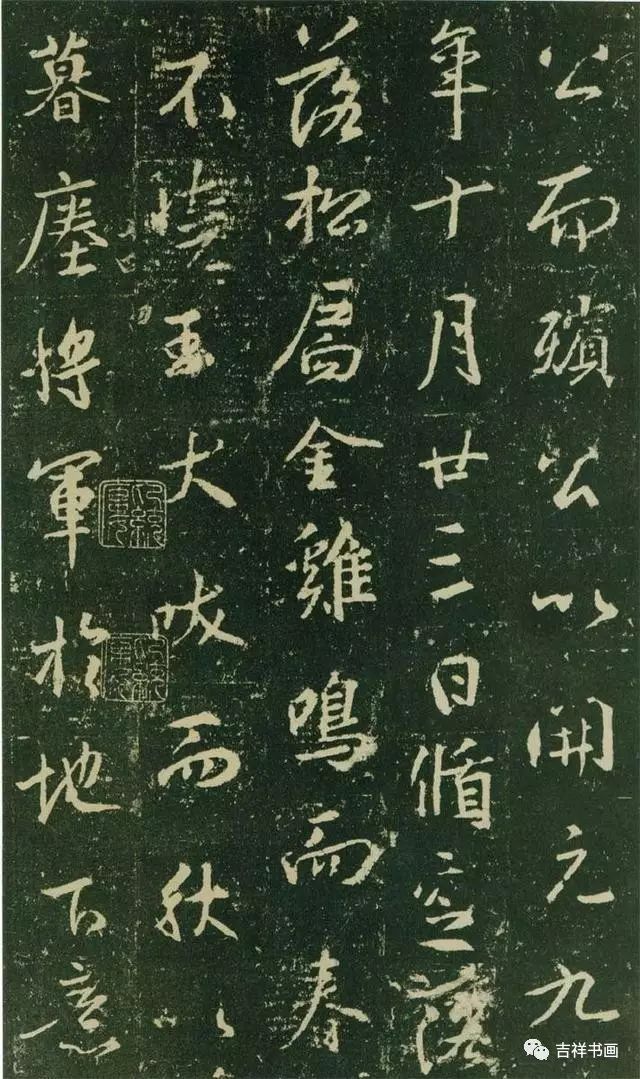 公而殯公以開元九
年十月廿三日循空落
落松扃金雞鳴而春
不曉玉犬吠而秋以
暮瘞將軍於地下意
吉祥书画